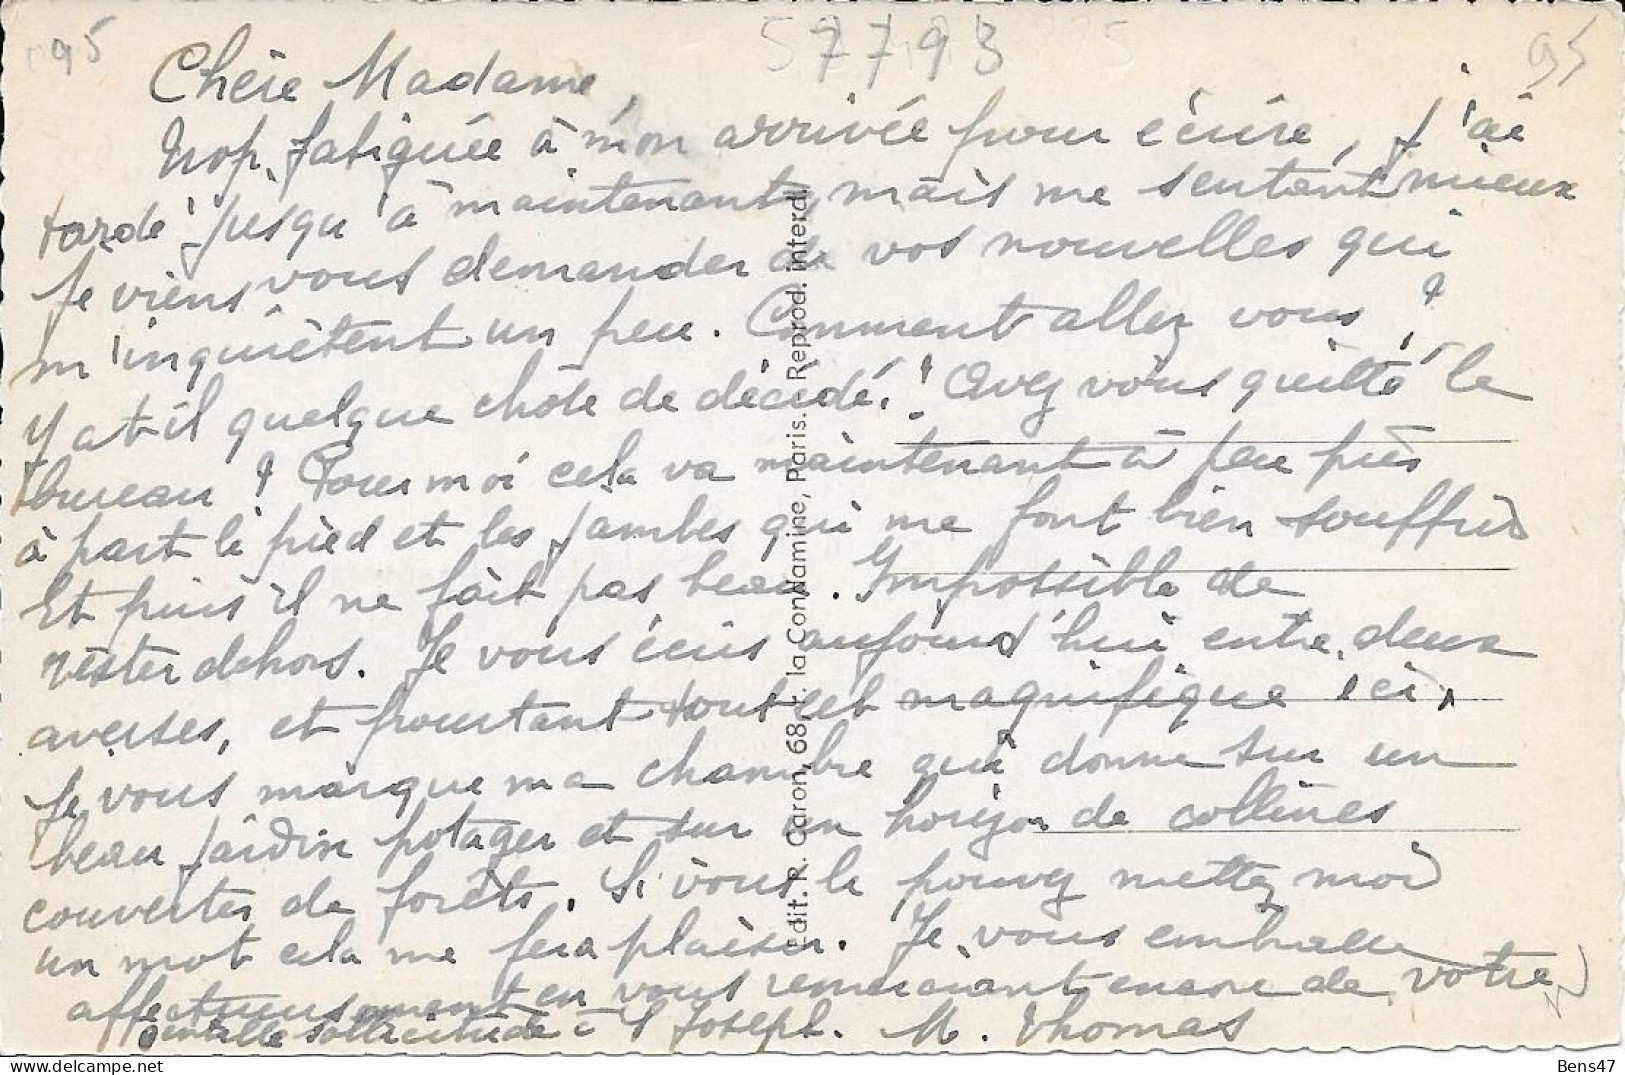 95 57793 95
Chère Madame,
trop fatiguée à mon arrivée pour écrire, j'ai
tardé jusqu'à maintenant, mais me sentant mieux
je viens vous demander de vos nouvelles qui
m'inquiètent un peu. Comment allez vous ?
Y at-il quelque chose de décidé ! Avez vous quitté le
bureau ? Pour moi cela va maintenant à peu près
à part le pied et les jambes qui me font bien souffrir
Et puis il ne fait pas beau. Impossible de
rester dehors. Je vous écris aujourd'hui entre deux
averses, et pourtant tout est magnifique ici,
Je vous marque ma chambre qui donne sur un
beau jardin potager et sur un horizon de collines
couvertes de forêts. Si vous le pouvez mettez moi
un mot cela me fera plaisir. Je vous embrasse
affectueusement en vous remerciant encore de votre
gentille sollicitude à St Joseph. M. Thomas
Edit. R. Caron, 68, r. la Condamine, Paris. Reprod. interd.
Bens47